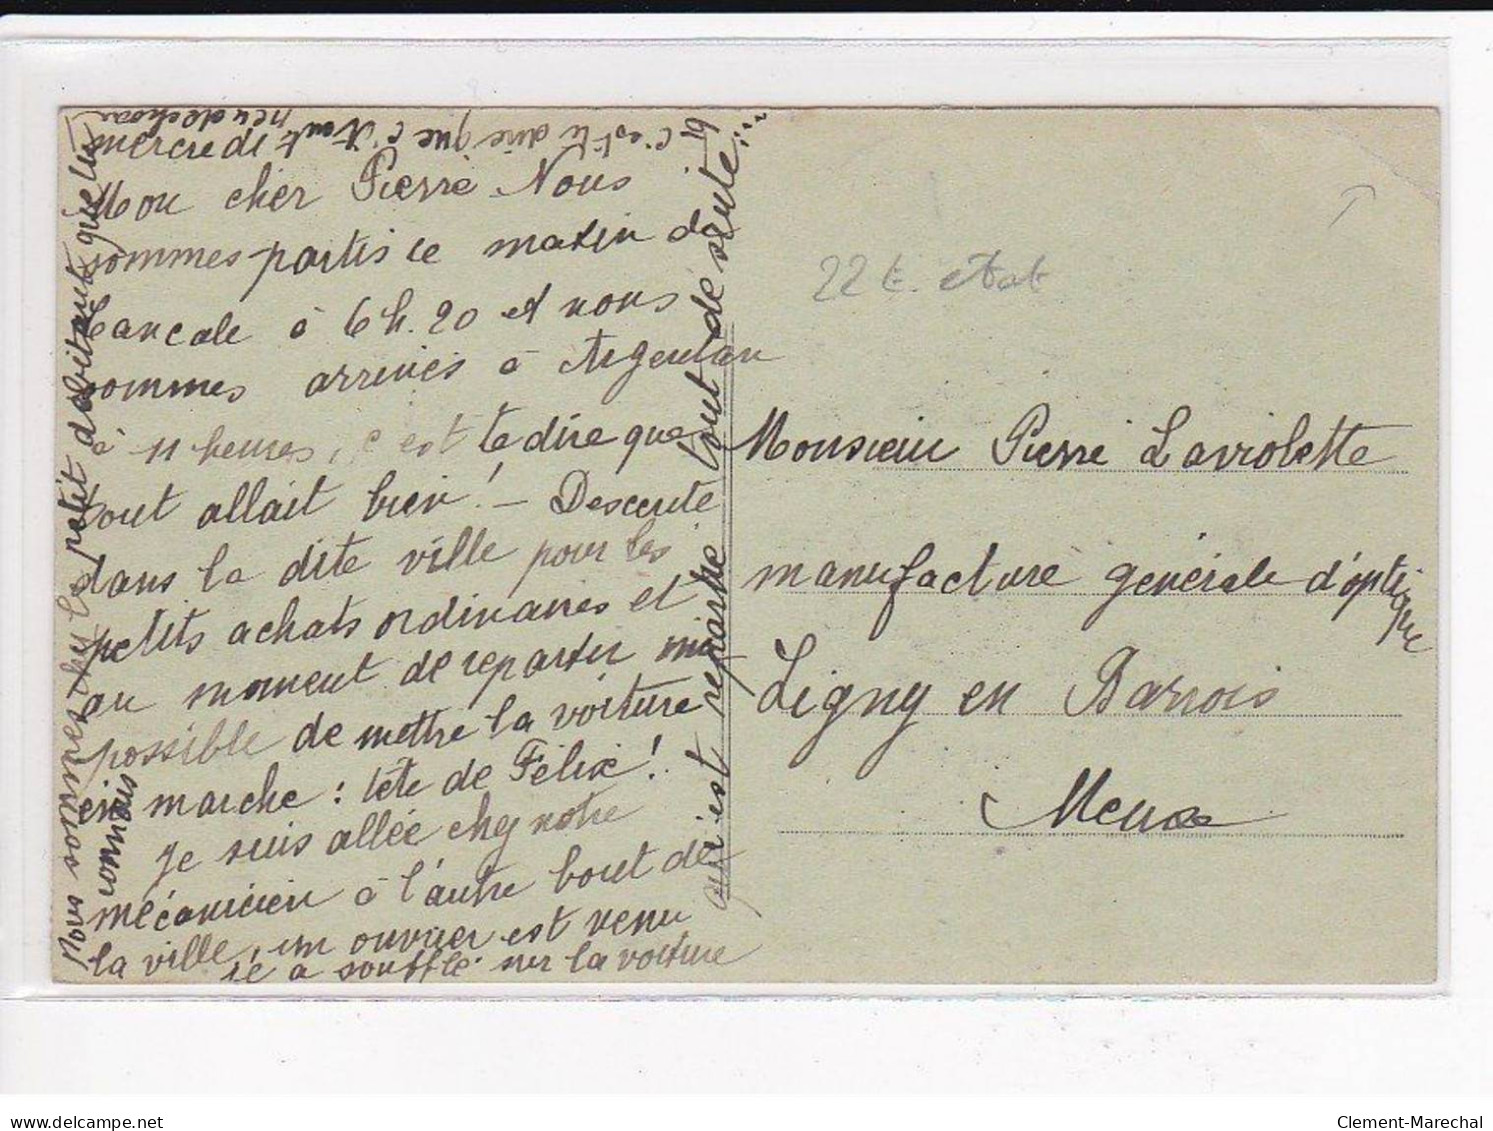 mercredi
Mon cher Pierre Nous
sommes partis ce matin de
Cancale à 6h.20 et nous
sommes arrivés à Argentan
à 11 heures, c'est te dire que
tout allait bien! – Descente
dans la dite ville pour les
petits achats ordinaires et
au moment de repartir, im
possible de mettre la voiture
en marche: tête de Félix!
je suis allée chez notre
mécanicien à l'autre bout de
la ville, un ouvrier est venu
a soufflé sur la voiture
qui est repartie tout de suite...
c'est te dire que c'était
peu de chose
Nous sommes chez le petit débitant que tu
connais
22 E. état
Monsieur Pierre Laviolette
manufacture générale d'optique
Ligny en Barrois
Meuse
delcampe.net
Clement-Marechal